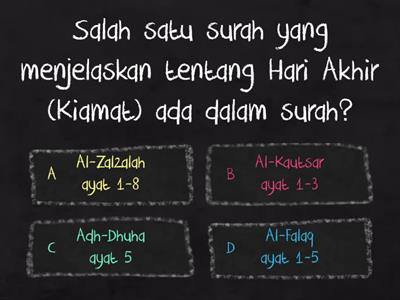 Salah satu surah yang
menjelaskan tentang Hari Akhir
(Kiamat) ada dalam surah?
A
Al-Zalzalah
ayat 1-8
B
Al-Kautsar
ayat 1-3
C
Adh-Dhuha
ayat 5
D
Al-Falaq
ayat 1-5